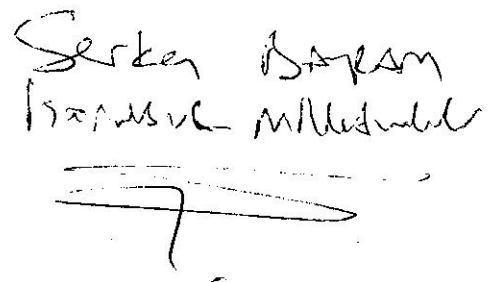 Serkan BAYRAM
İstanbul Milletvekili